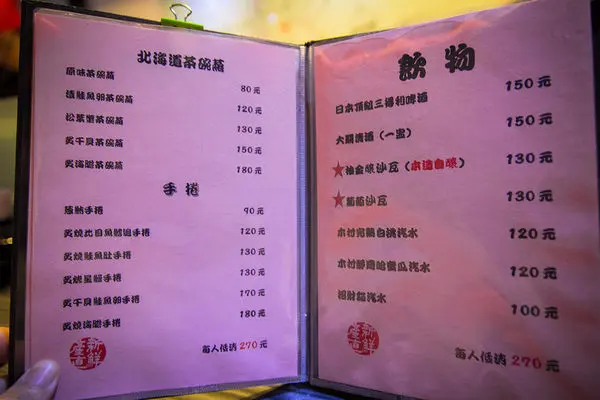 北海道茶碗蒸
原味茶碗蒸 80元
漬鮭魚卵茶碗蒸 120元
松葉蟹茶碗蒸 130元
炙干貝茶碗蒸 150元
炙海膽茶碗蒸 180元
手捲
蔥鮪手捲 90元
炙燒比目魚鰭邊手捲 120元
炙燒鮭魚肚手捲 130元
炙燒星鰻手捲 130元
炙干貝鮭魚卵手捲 170元
炙燒海膽手捲 180元
每人低消270元
飲物
日本頂級三得利啤酒 150元
大關清酒(一壺) 150元
★柚金釀沙瓦(本店自釀) 130元
★葡萄沙瓦 130元
木村完熟白桃汽水 120元
木村靜岡哈蜜瓜汽水 120元
招財貓汽水 100元
新鮮
每人低消270元